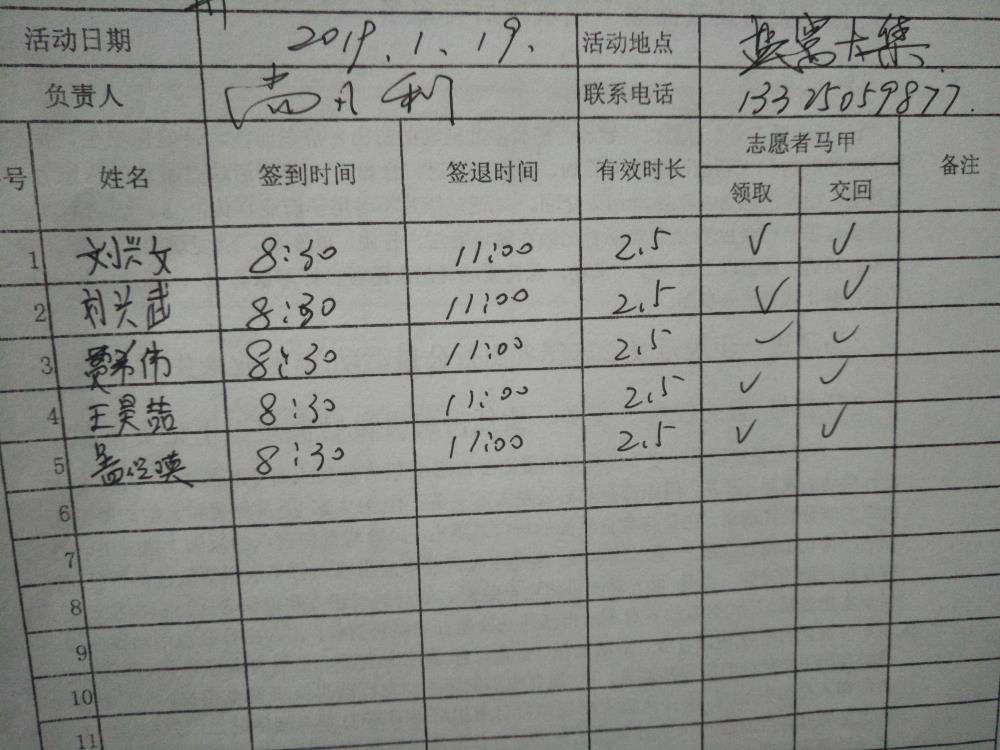 活动日期 2019.1.19. 活动地点 盐窝大集
负责人 利 联系电话 13325059877.
号 姓名 签到时间 签退时间 有效时长 志愿者马甲 备注
领取 交回
1 刘兴文 8:30 11:00 2.5 √ √
2 刘兴武 8:30 11:00 2.5 √ √
3 贾希伟 8:30 11:00 2.5 √ √
4 王昊喆 8:30 11:00 2.5 √ √
5 8:30 11:00 2.5 √ √
6
7
8
9
10
11